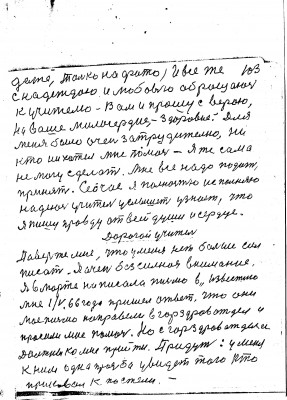 даже, только на фото, и все же 103
с надеждою и любовью обращаюсь
к учителю – Вам и прошу с верою,
на ваше милосердие – здоровье! Для
меня было очен затруднително, ни
кто не хотел мне помоч – я же сама
не могу сделат. Мне все надо подат,
принят. Сейчас я полностю исполняю
надеюс учител услышит узнает, что
я пишу правду от всей души и сердце.
Дорогой учител
Поверте мне, что у меня нет болше сил
писат. Я очен безсилная внимание.
Я в марте написала писмо в „Известию
мне 1/V. 66 года пришел ответ, что они
мое писмо направели в горздравотдел и
просили мне помоч. Но с горздравотдела
должны ко мне прийти. Придут: у меня
к ним одна прозба увидет того кто
прикован к постели. –